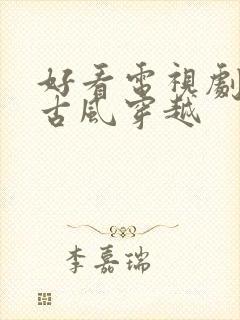 好看电视劇
古風穿越
李嘉瑞